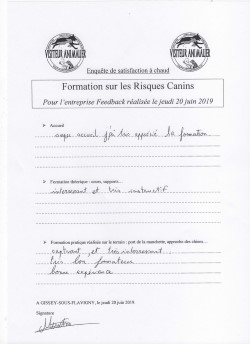 VISITEUR ANIMALIER
VISITEUR ANIMALIER
Enquête de satisfaction à chaud
Formation sur les Risques Canins
Pour l'entreprise Feedback réalisée le jeudi 20 juin 2019
➤ Accueil
accueil j'ai très apprécié la formation
➤ Formation théorique : cours, supports…
intéressant et très instructif
➤ Formation pratique réalisée sur le terrain : port de la manchette, approche des chiens…
et très intéressant
très bon formateur
bonne expérience
A GISSEY-SOUS-FLAVIGNY, le jeudi 20 juin 2019
Signature